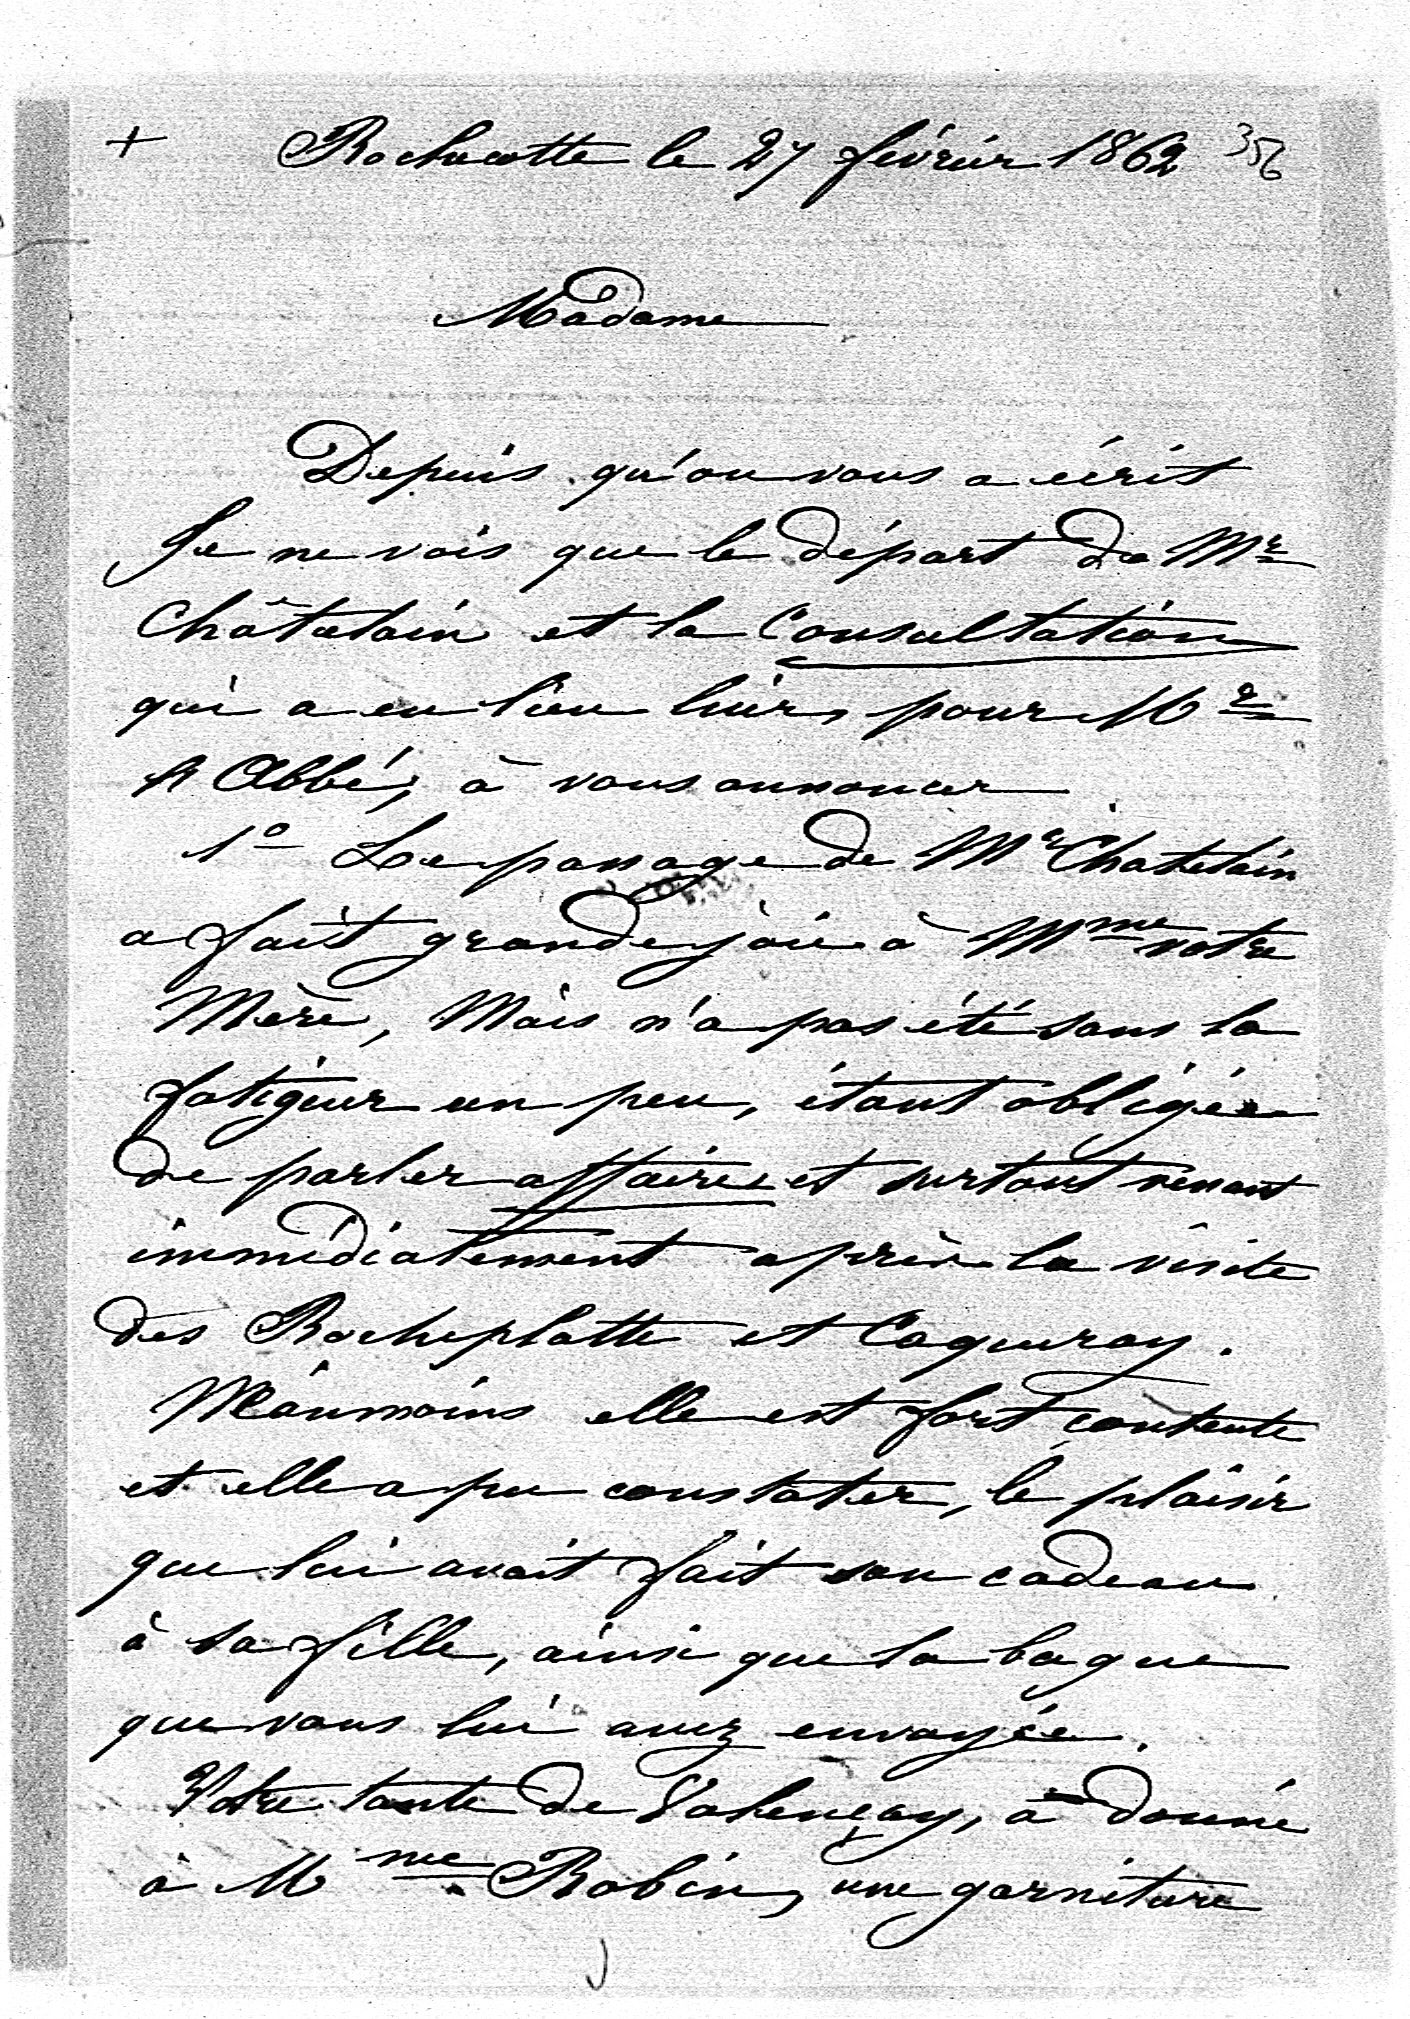 + Rochecotte le 27 février 1862 356
Madame
Depuis qu'on vous a écrit
Je ne vois que le départ de Mr
Châtelain et la Consultation
qui a eu lieu hier, pour Mr
l'Abbé, à vous annoncer
1o Le passage de Mr Chatelain
a fait grande joie à Mme votre
Mère, Mais n'a pas été sans la
fatiguer un peu, étant obligée
de parler affaires et surtout venant
immédiatement après la visite
des Rocheplatte et Caqueray.
Néanmoins elle est fort contente
et elle a pu constater, le plaisir
que lui avait fait son cadeau
à sa fille, ainsi que la bague
que vous lui avez envoyée.
Votre tante de Valençay, a donné
à Mme Robin, une garniture